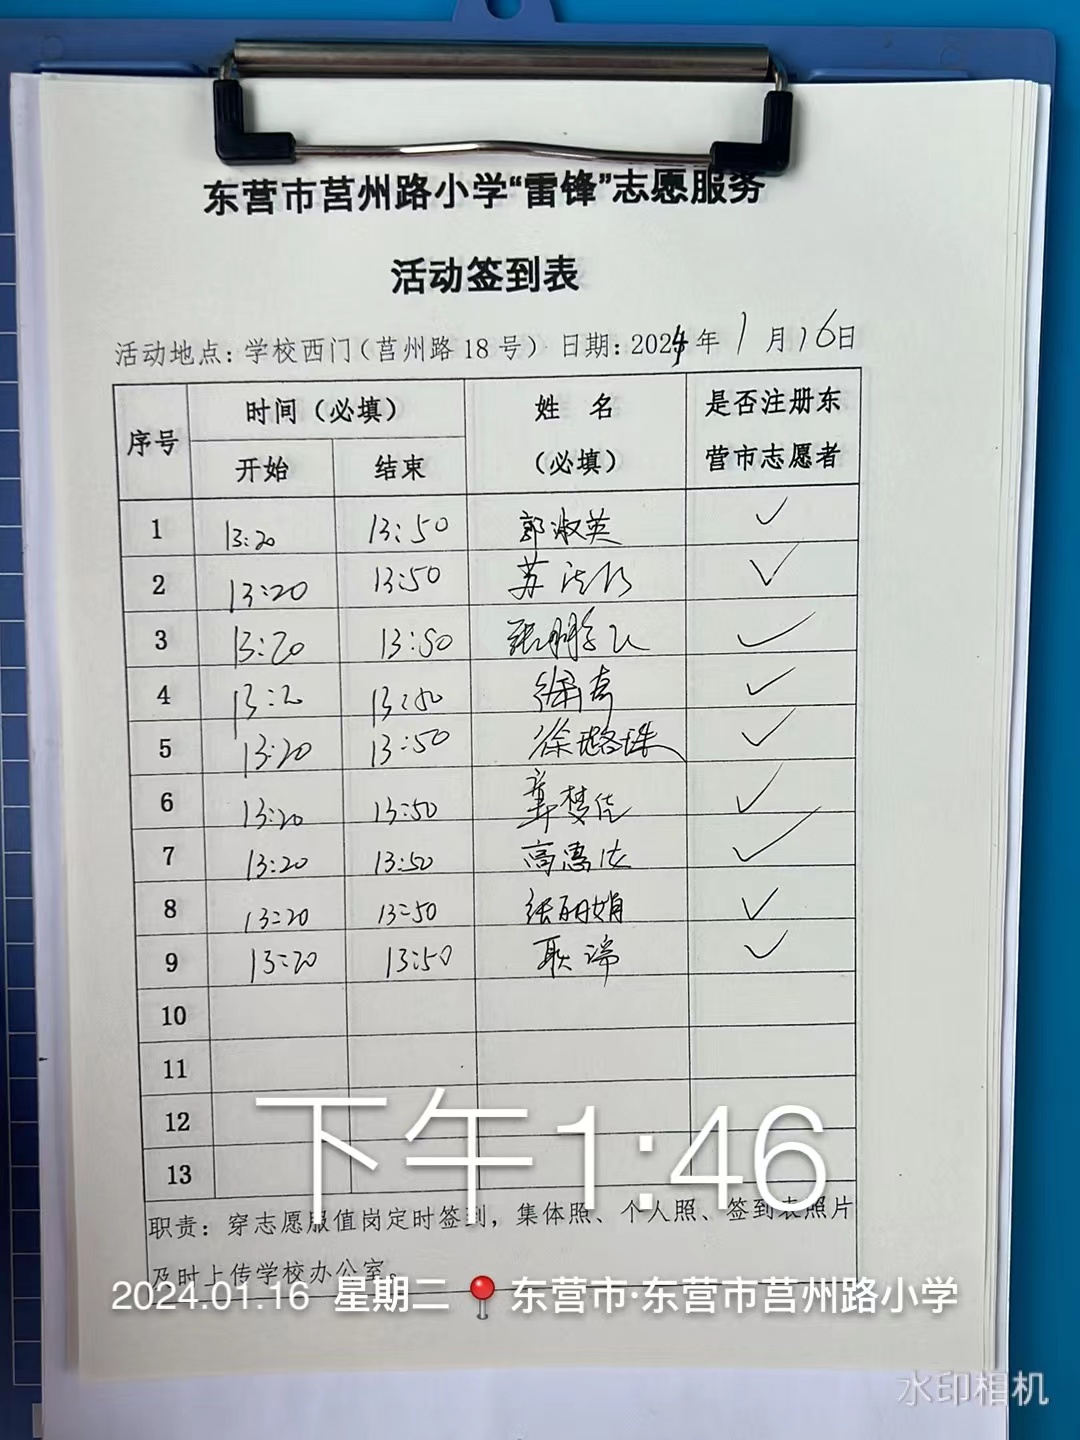 东营市莒州路小学“雷锋”志愿服务
活动签到表
活动地点：学校西门（莒州路18号） 日期：2024年1月16日
序号 时间（必填） 姓 名（必填） 是否注册东营市志愿者
开始 结束
1 13:20 13:50 郭淑英 ✓
2 13:20 13:50 苏 ✓
3 13:20 13:50 张 ✓
4 13:20 13:50 ✓
5 13:20 13:50 徐璐珠 ✓
6 13:20 13:50 梦佳 ✓
7 13:20 13:50 高惠 ✓
8 13:20 13:50 张丽娟 ✓
9 13:20 13:50 耿瑞 ✓
10
11
12
13
下午1:46
职责：穿志愿服值岗定时签到，集体照、个人照、签到表照片
及时上传学校办公室。
2024.01.16 星期二 东营市·东营市莒州路小学
水印相机